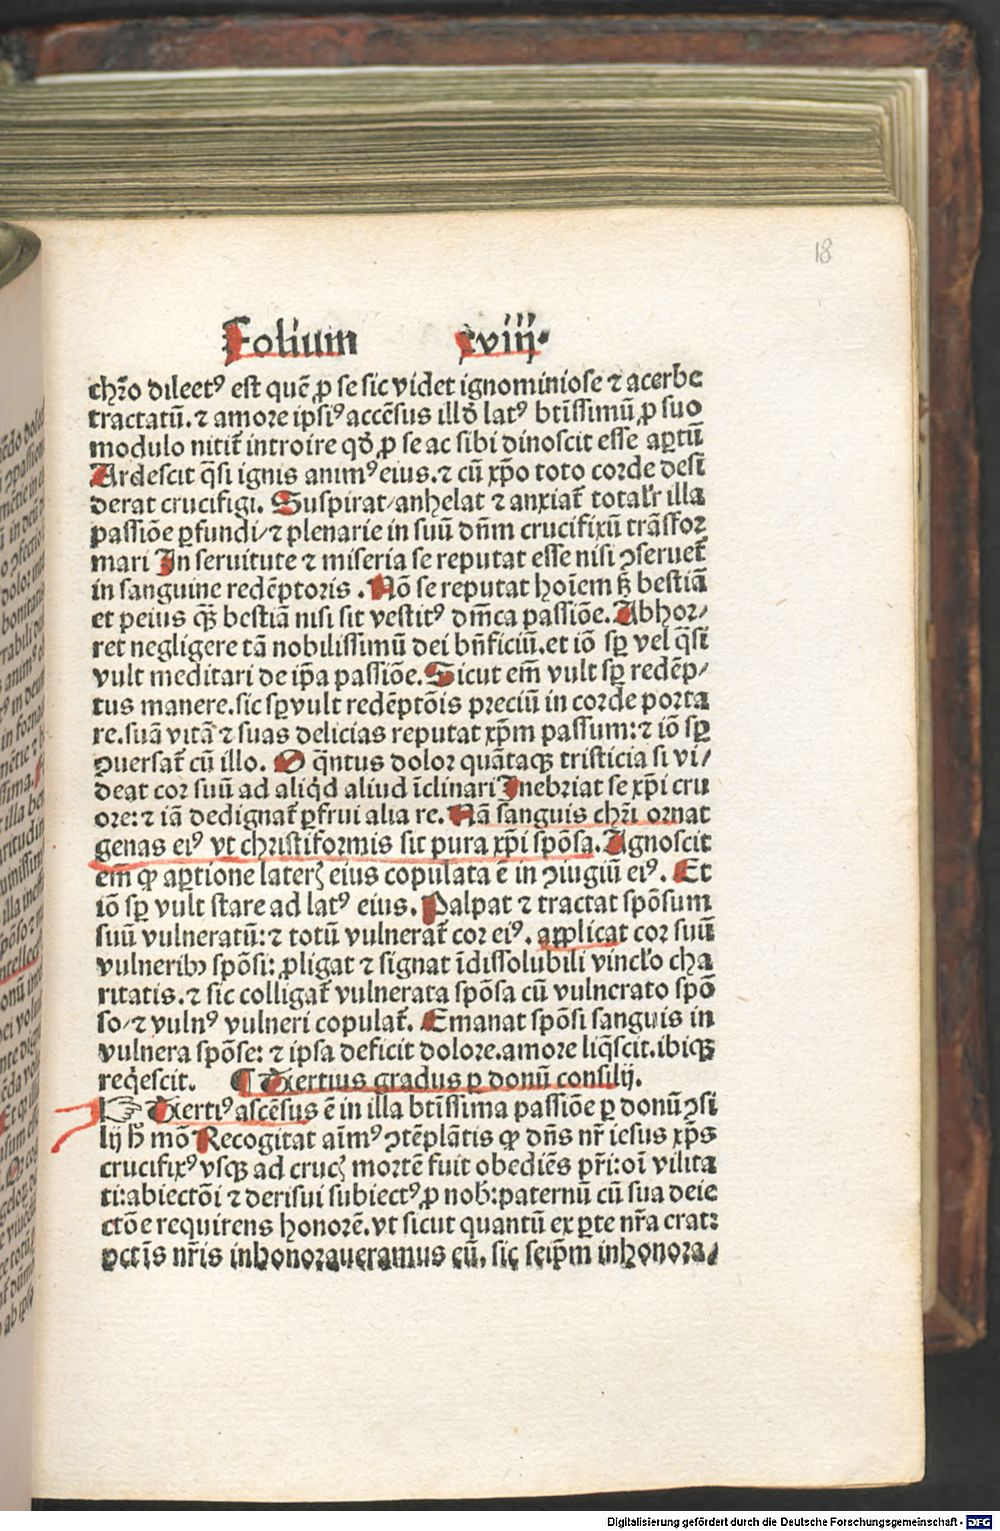 18
Folium xviij.
chr̄o dilect⁹ est quē ꝓ se sic videt ignominiose ⁊ acerbe
tractatū. ⁊ amore ipsi⁹ accēsus illḋ lat⁹ btīssimū ꝓ suo
modulo nitit̄ introire qḋ ꝓ se ac sibi dinoscit esse aꝑtū
Ardescit q̄si ignis anim⁹ eius. ⁊ cū xp̄o toto corde desi
derat crucifigi. Suspirat/anhelat ⁊ anxiat̄ totalr̄ illa
passiōe ꝑfundi/⁊ plenarie in suū dn̄m crucifixū trāsfor
mari In seruitute ⁊ miseria se reputat esse nisi ꝯseruet̄
in sanguine redēptoris . Nō se reputat hoīem sꝫ bestiā
et peius qꝫ bestiā nisi sit vestit⁹ dm̄ca passiōe. Abhor/
ret negligere tā nobilissimū dei bn̄ficiū. et iō sꝑ vel q̄si
vult meditari de ip̄a passiōe. Sicut em̄ vult sꝑ redēp/
tus manere. sic sꝑ vult redēptōis preciū in corde porta
re. suā vitā ⁊ suas delicias reputat xp̄m passum: ⁊ iō sꝑ
ꝯuersat̄ cū illo. O q̄ntus dolor quātaqꝫ tristicia si vi/
deat cor suū ad aliq̇d aliud īclinari Inebriat se xp̄i cru
ore: ⁊ iā dedignat̄ ꝑfrui alia re. Nā sanguis chr̄i ornat
genas ei⁹ vt christiformis sit pura xp̄i spōsa. Agnoscit
em̄ ꝙ aꝑtione laterꝫ eius copulata ē in ꝯiugiū ei⁹. Et
iō sꝑ vult stare ad lat⁹ eius. Palpat ⁊ tractat spōsum
suū vulneratū: ⁊ totū vulnerat̄ cor ei⁹. applicat cor suū
vulneribꝰ spōsi: ꝓligat ⁊ signat īdissolubili vincl̄o cha
ritatis. ⁊ sic colligat̄ vulnerata spōsa cū vulnerato spō
so/⁊ vuln⁹ vulneri copulat̄. Emanat spōsi sanguis in
vulnera spōse: ⁊ ipsa deficit dolore. amore liq̄scit. ibiqꝫ
req̇escit. ¶ Tertius gradus ꝑ donū consilij.
☞ Terti⁹ ascēsus ē in illa btīssima passiōe ꝑ donū ꝯsi
lij h̄ mō Recogitat aīm⁹ ꝯtēplātis ꝙ dn̄s nr̄ iesus xp̄s
crucifix⁹ vsqꝫ ad crucꝫ mortē fuit obediēs pr̄i: oī vilita
ti: abiectōi ⁊ derisui subiect⁹ ꝓ nob̄: paternū cū sua deie
ctōe requirens honorē. vt sicut quantū ex ꝑte nr̄a erat:
pctīs nr̄is inhonoraueramus eū. sic seip̄m inhonora/
Digitalisierung gefördert durch die Deutsche Forschungsgemeinschaft - DFG